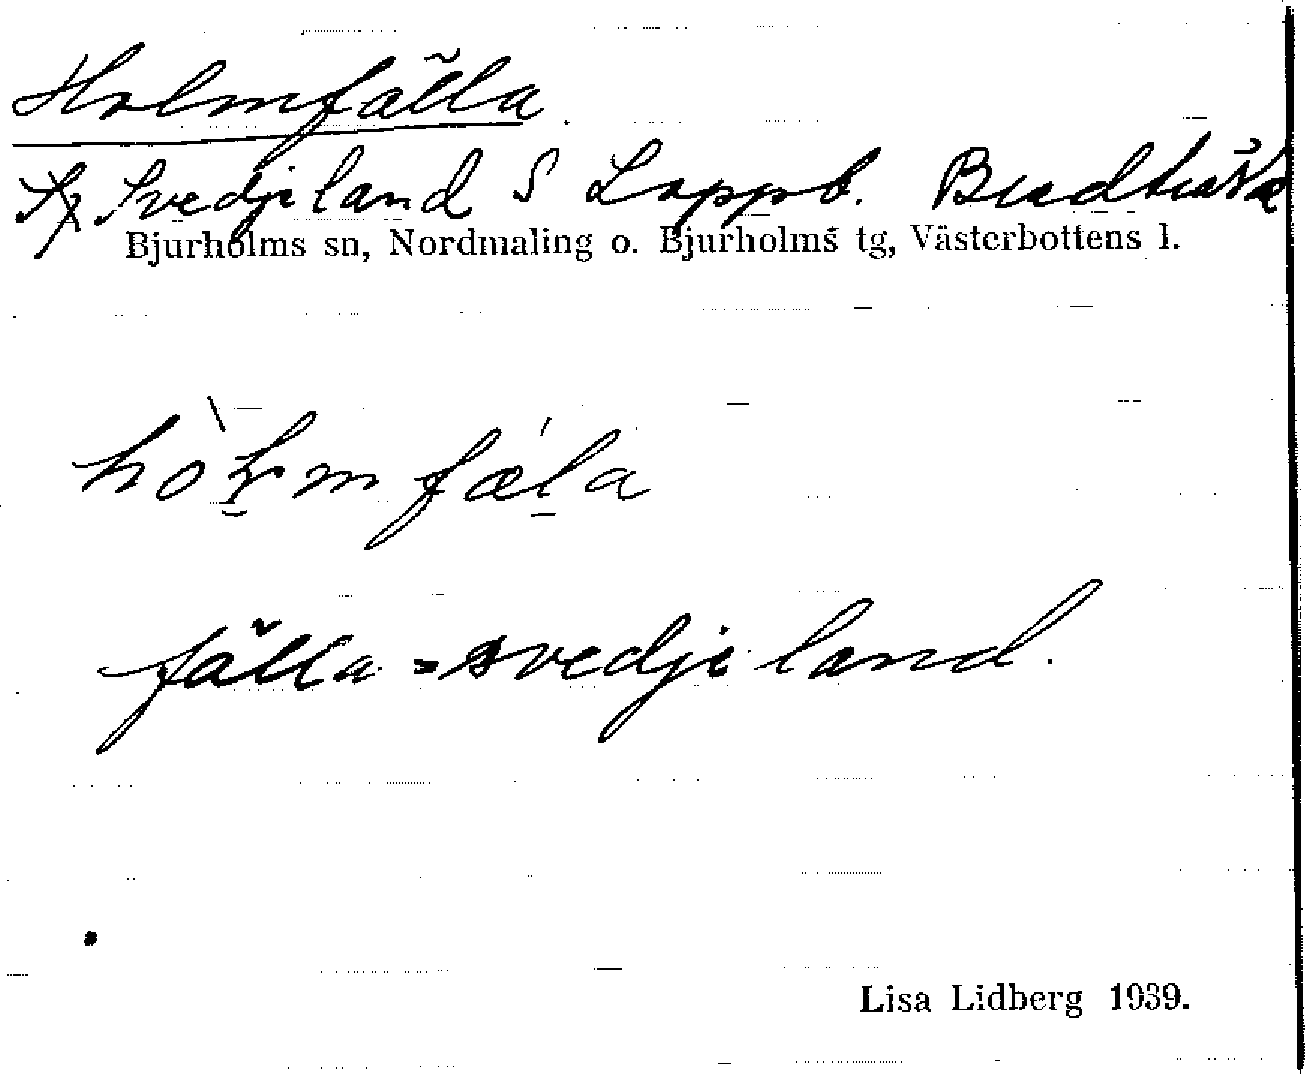 Holmfälla
Svedjeland S Lappb. Budträsk
Bjurholms sn, Nordmaling o. Bjurholms tg, Västerbottens l.
fälla = svedjeland.
Lisa Lidberg 1939.